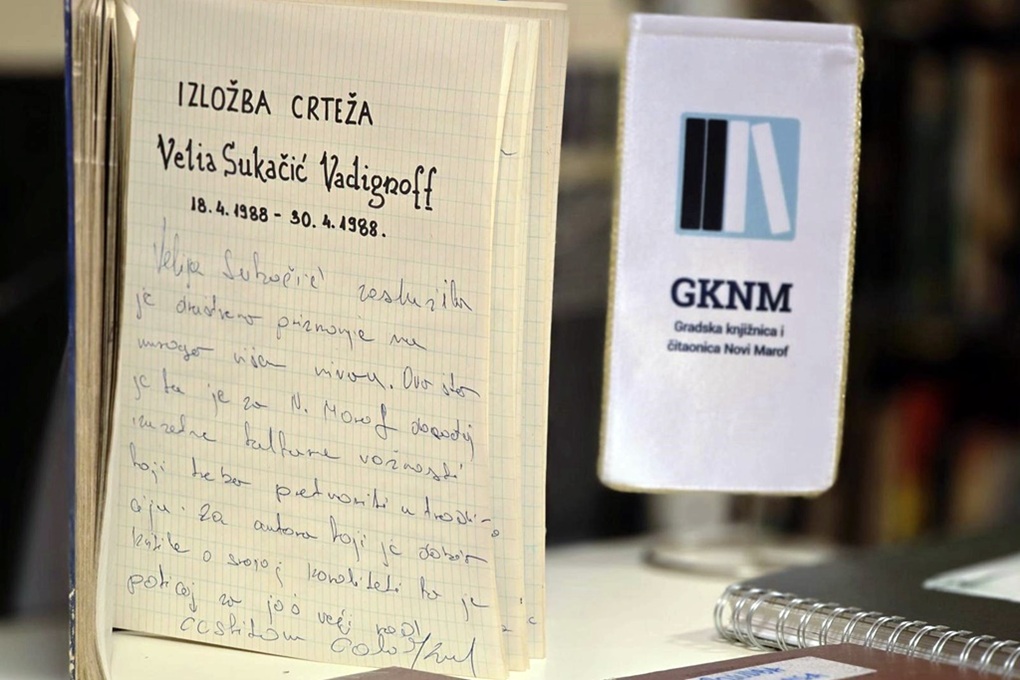 IZLOŽBA CRTEŽA
Velia Sukačić Vadignoff
18.4.1988 - 30.4.1988.
Velja Sukačić zaslužila
je društveno priznanje na
mnogo višem nivou. Ovo što
je tu je za N. Marof događaj
izuzetne kulturne važnosti
koji treba pretvoriti u tradi-
ciju. Za autora koji je dobio
kritike o svojoj kvaliteti to je
poticaj za još veći rad!
čestitam
GKNM
Gradska knjižnica i
čitaonica Novi Marof